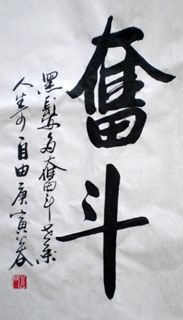 奮斗
黑髮多奮斗老來
人生可自由庚寅春